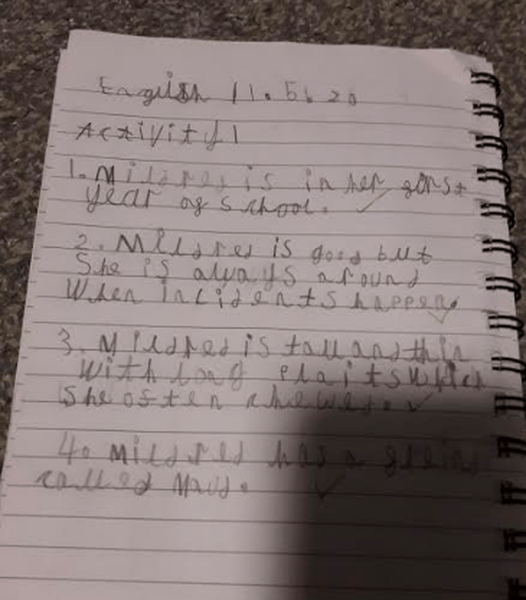 English 11.5.20
Activity 1
1. Mildred is in her girst
year og school.
2. Mildred is good but
She is always around
When incidents happen
3. Mildred is tall and thin
with long plaits which
She osten chewed.
4. Mildred has a greind
called Maud.